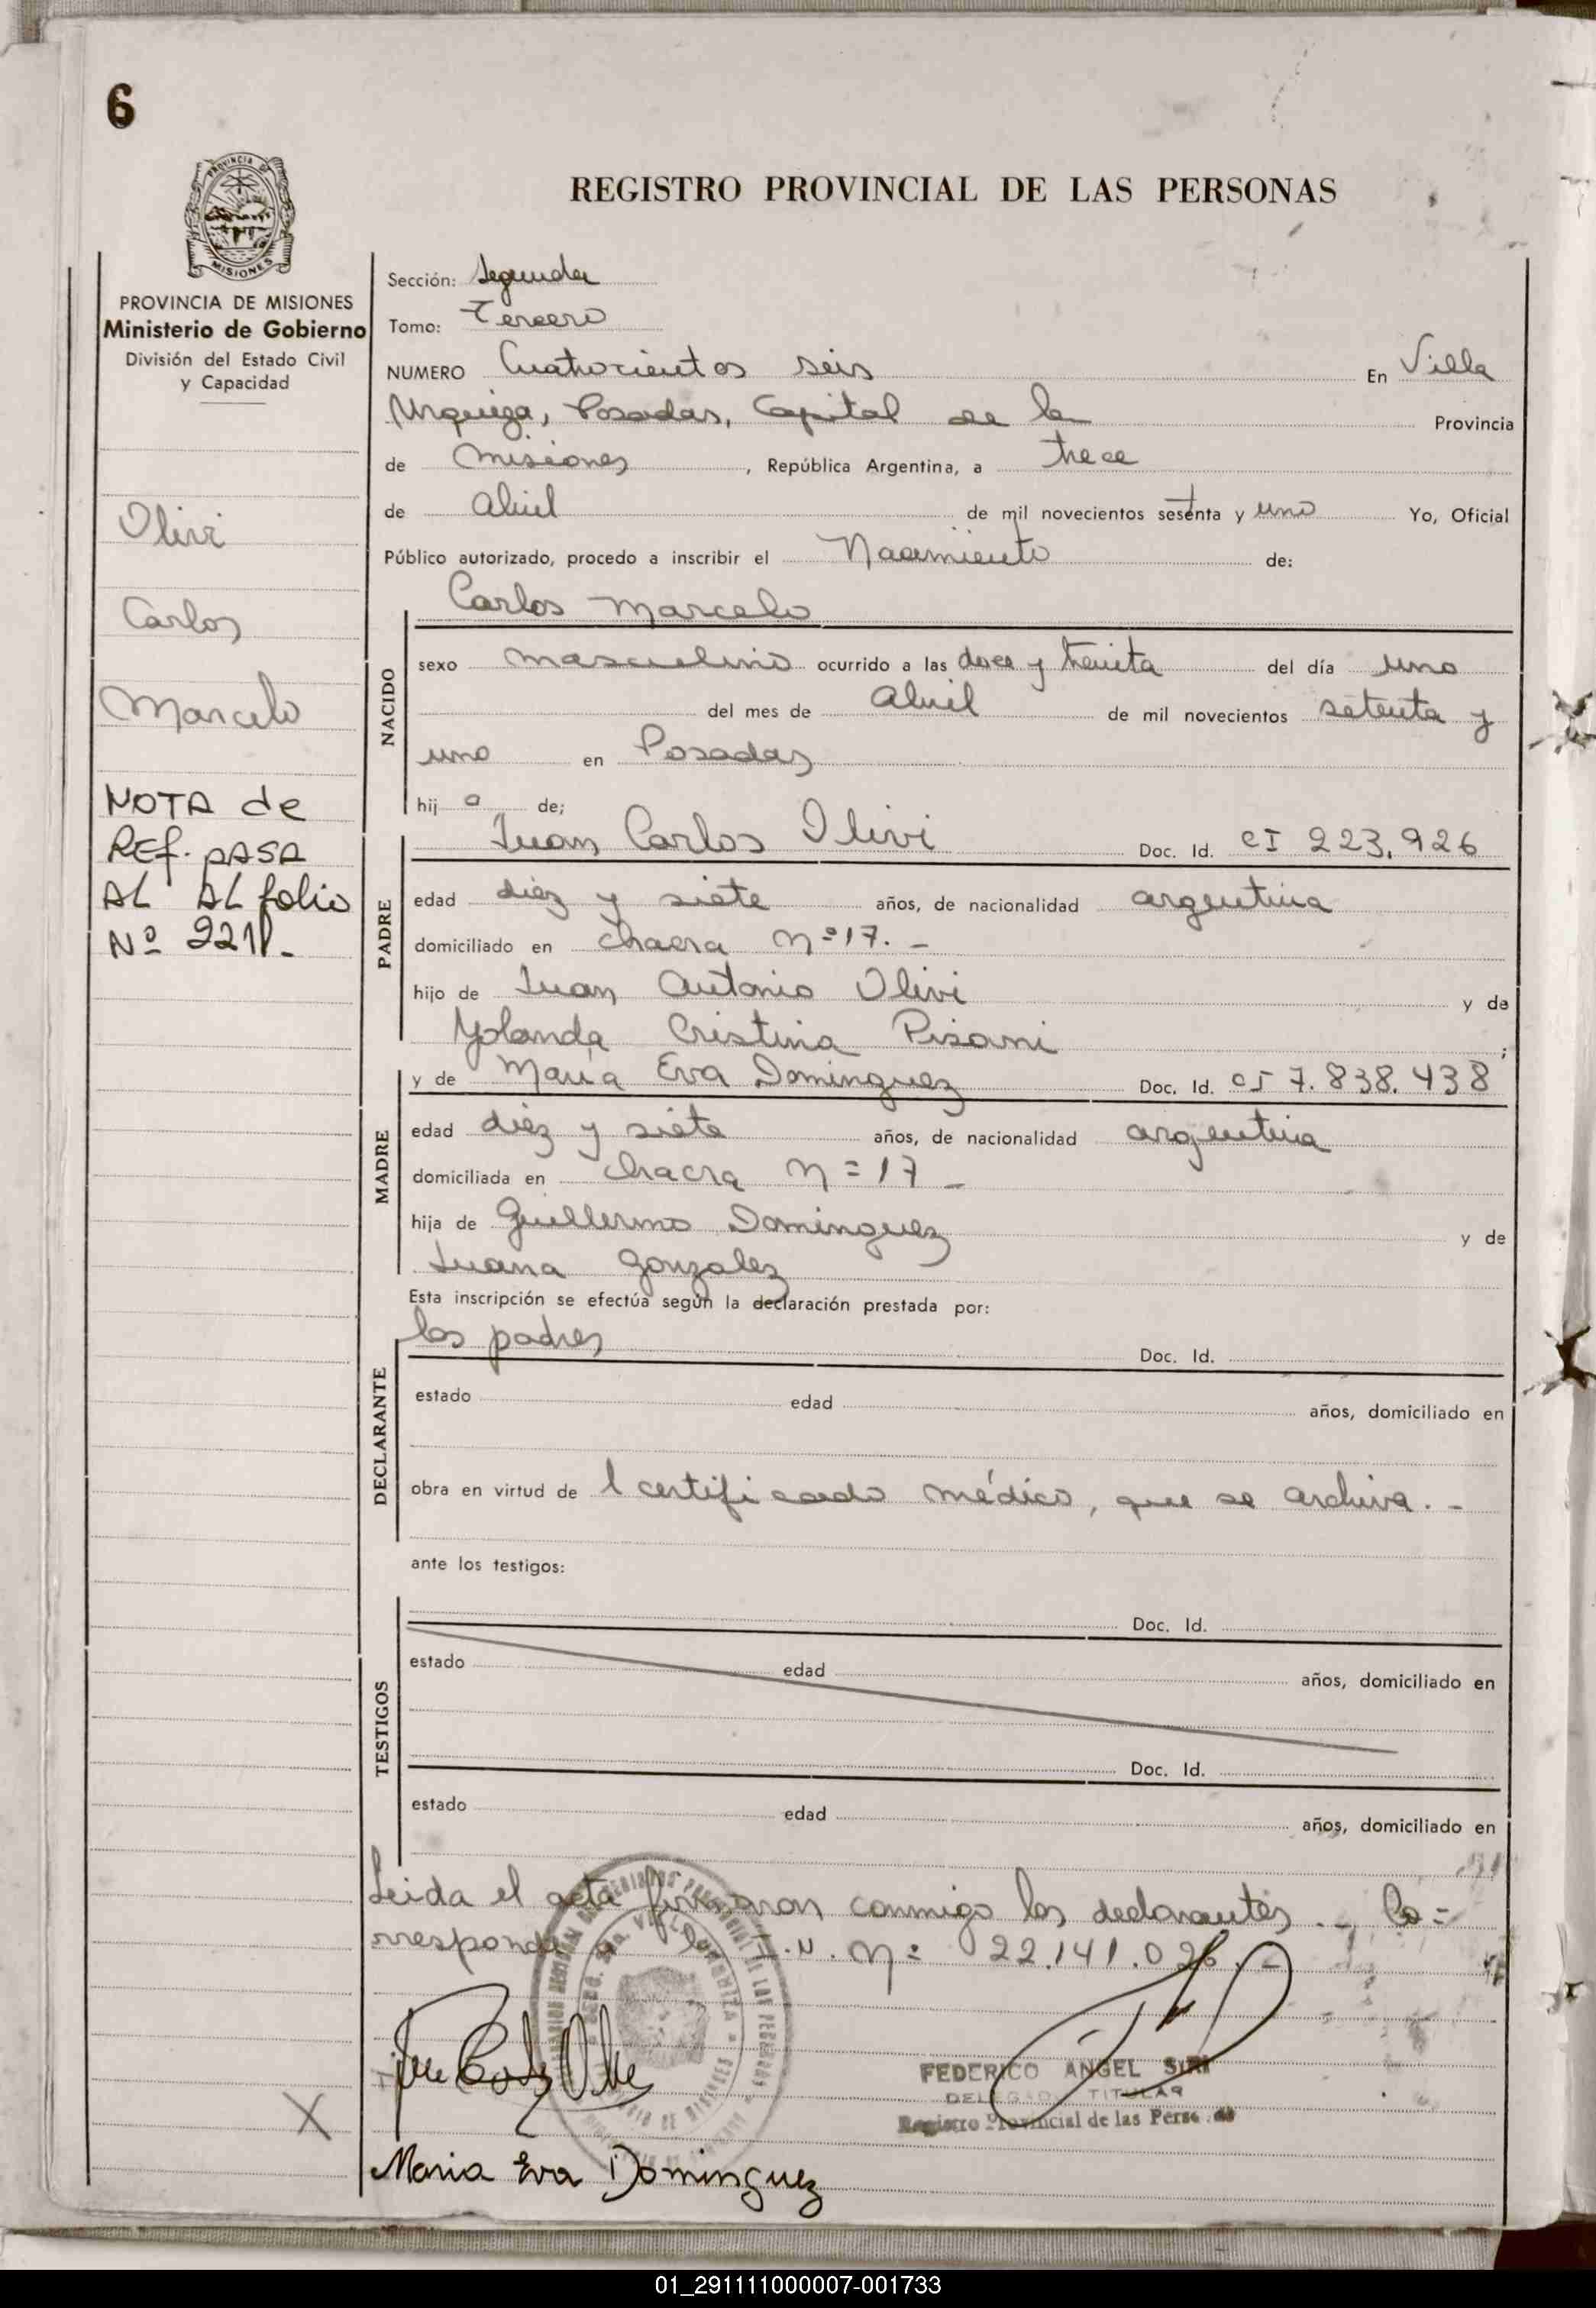 6
PROVINCIA DE
MISIONES
REGISTRO PROVINCIAL DE LAS PERSONAS
PROVINCIA DE MISIONES
Ministerio de Gobierno
División del Estado Civil
y Capacidad
Olivi
Carlos
Marcelo
NOTA de
REf. pASA
AL AL folio
Nº 221
Sección: Segunda
Tomo: Tercero
NUMERO Cuatrocientos seis En Villa
Urquiza, Posadas, Capital de la Provincia
de Misiones, República Argentina, a trece
de abril de mil novecientos setenta y uno Yo, Oficial
Público autorizado, procedo a inscribir el Nacimiento de:
Carlos Marcelo
NACIDO
sexo masculino ocurrido a las doce y treinta del día uno
del mes de abril de mil novecientos setenta y
uno en Posadas
hij o de;
Juan Carlos Olivi Doc. Id. CI 223.926
PADRE
edad diez y siete años, de nacionalidad argentina
domiciliado en chacra Nº 17. -
hijo de Juan Antonio Olivi y de
Yolanda Cristina Pisani ;
y de Maria Eva Dominguez Doc. Id. 7.838.438
MADRE
edad diez y siete años, de nacionalidad argentina
domiciliada en chacra N= 17 -
hija de Guillermo Dominguez y de
Juana Gonzalez
Esta inscripción se efectúa según la declaración prestada por:
los padres Doc. Id.
DECLARANTE
estado edad años, domiciliado en
obra en virtud de l certificado médico, que se archiva. -
ante los testigos:
Doc. Id.
TESTIGOS
estado edad años, domiciliado en
Doc. Id.
estado edad años, domiciliado en
Leida el acta firmaron conmigo los declarantes. - Co=
rresponde a la N. N= 22.141.026. -
FEDERICO ANGEL SIRI
DELEGADO TITULAR
Registro Provincial de las Personas
Maria Eva Dominguez
01_291111000007-001733